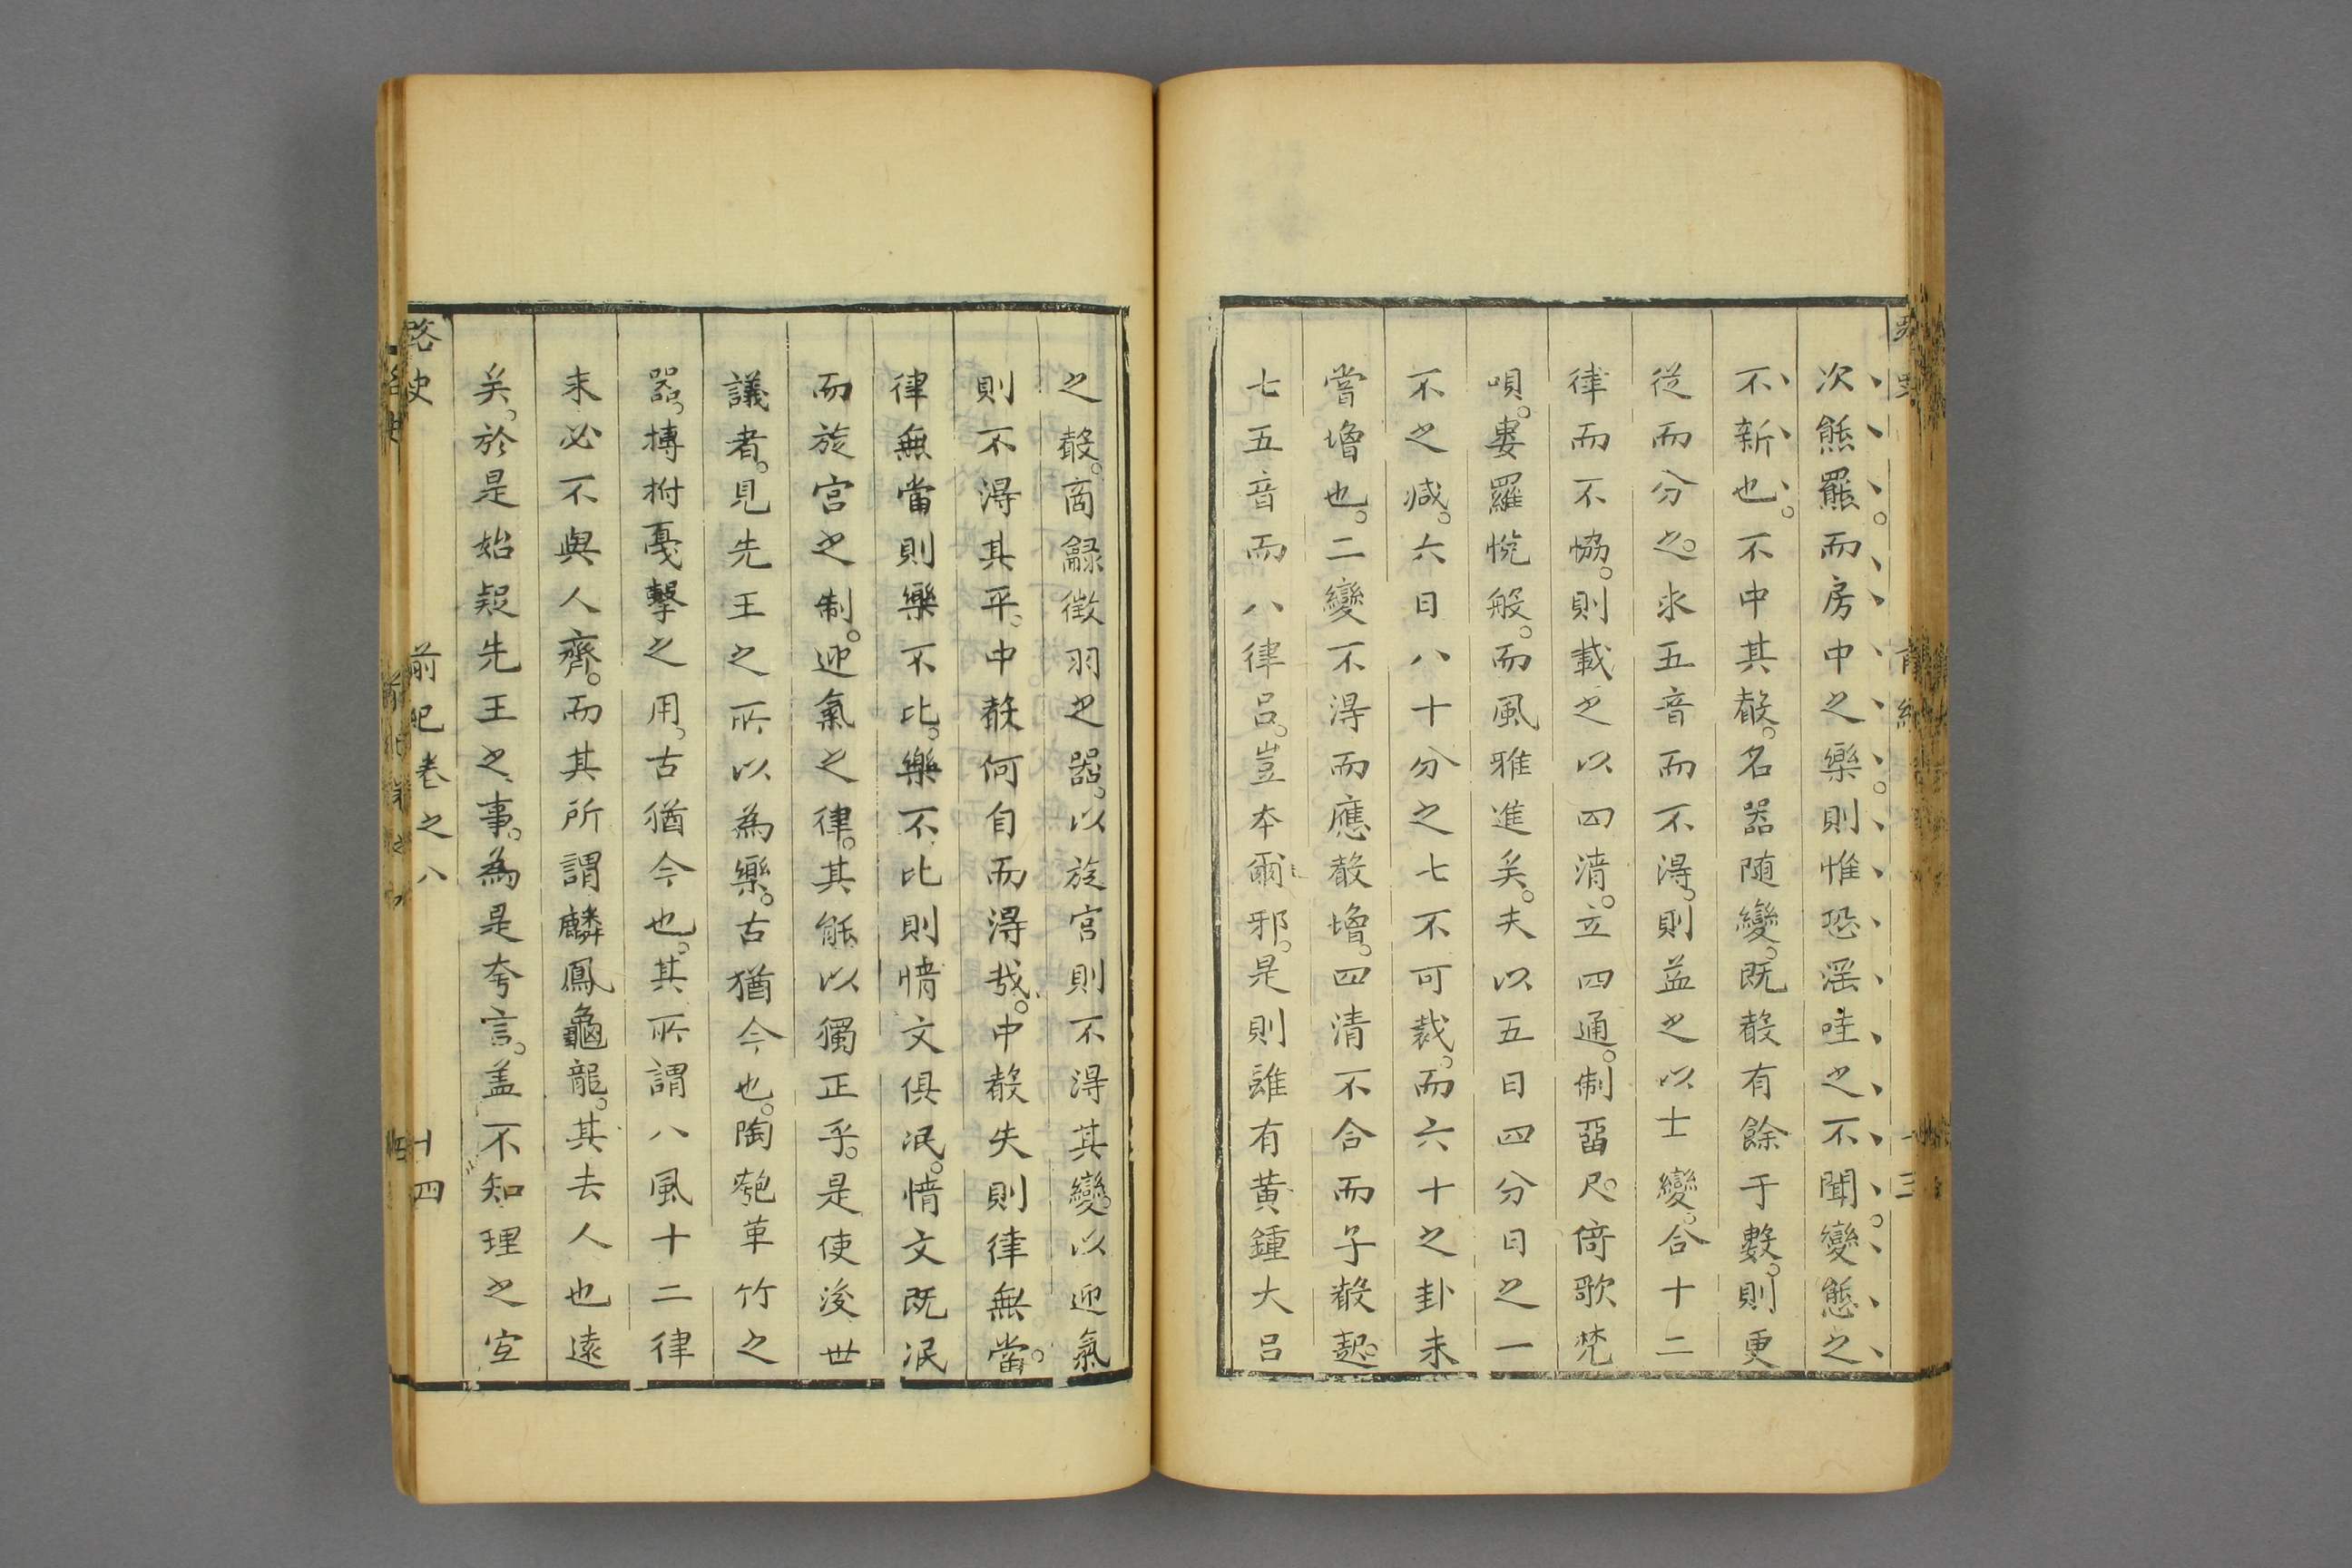 次熊羆。而房中之樂。則惟恐滛哇之不聞。變態之
不新也。不中其聲。名器随變。既聲有餘于數。則更
從而分之。求五音而不得。則益之以士變。合十二
律而不恊。則載之以四清。立四通。制畱尺。倚歌梵
唄。婁羅悅般。而風雅進矣。夫以五日四分日之一
不之减。六日八十分之七不可裁。而六十之卦未
嘗增也。二變不淂而應聲增。四清不合而子聲起。
七五音而八律呂。豈夲爾邪。是則誰有黃鍾大呂
之聲。商龣徵羽之器。以旋宮則不淂其變。以迎氣
則不淂其平。中聲何自而淂哉。中聲失則律無當。
律無當則樂不比。樂不比則情文俱泯。情文既泯
而旋宮之制。迎氣之律。其能以獨正乎。是使後世
議者。見先王之所以為樂。古猶今也。陶匏革竹之
器。搏拊戞擊之用。古猶今也。其所謂八風十二律
未必不與人齊。而其所謂麟鳳龜龍。其去人也遠
矣。於是始疑先王之事。為是夸言。盖不知理之宐
路史 前紀卷之八 十四